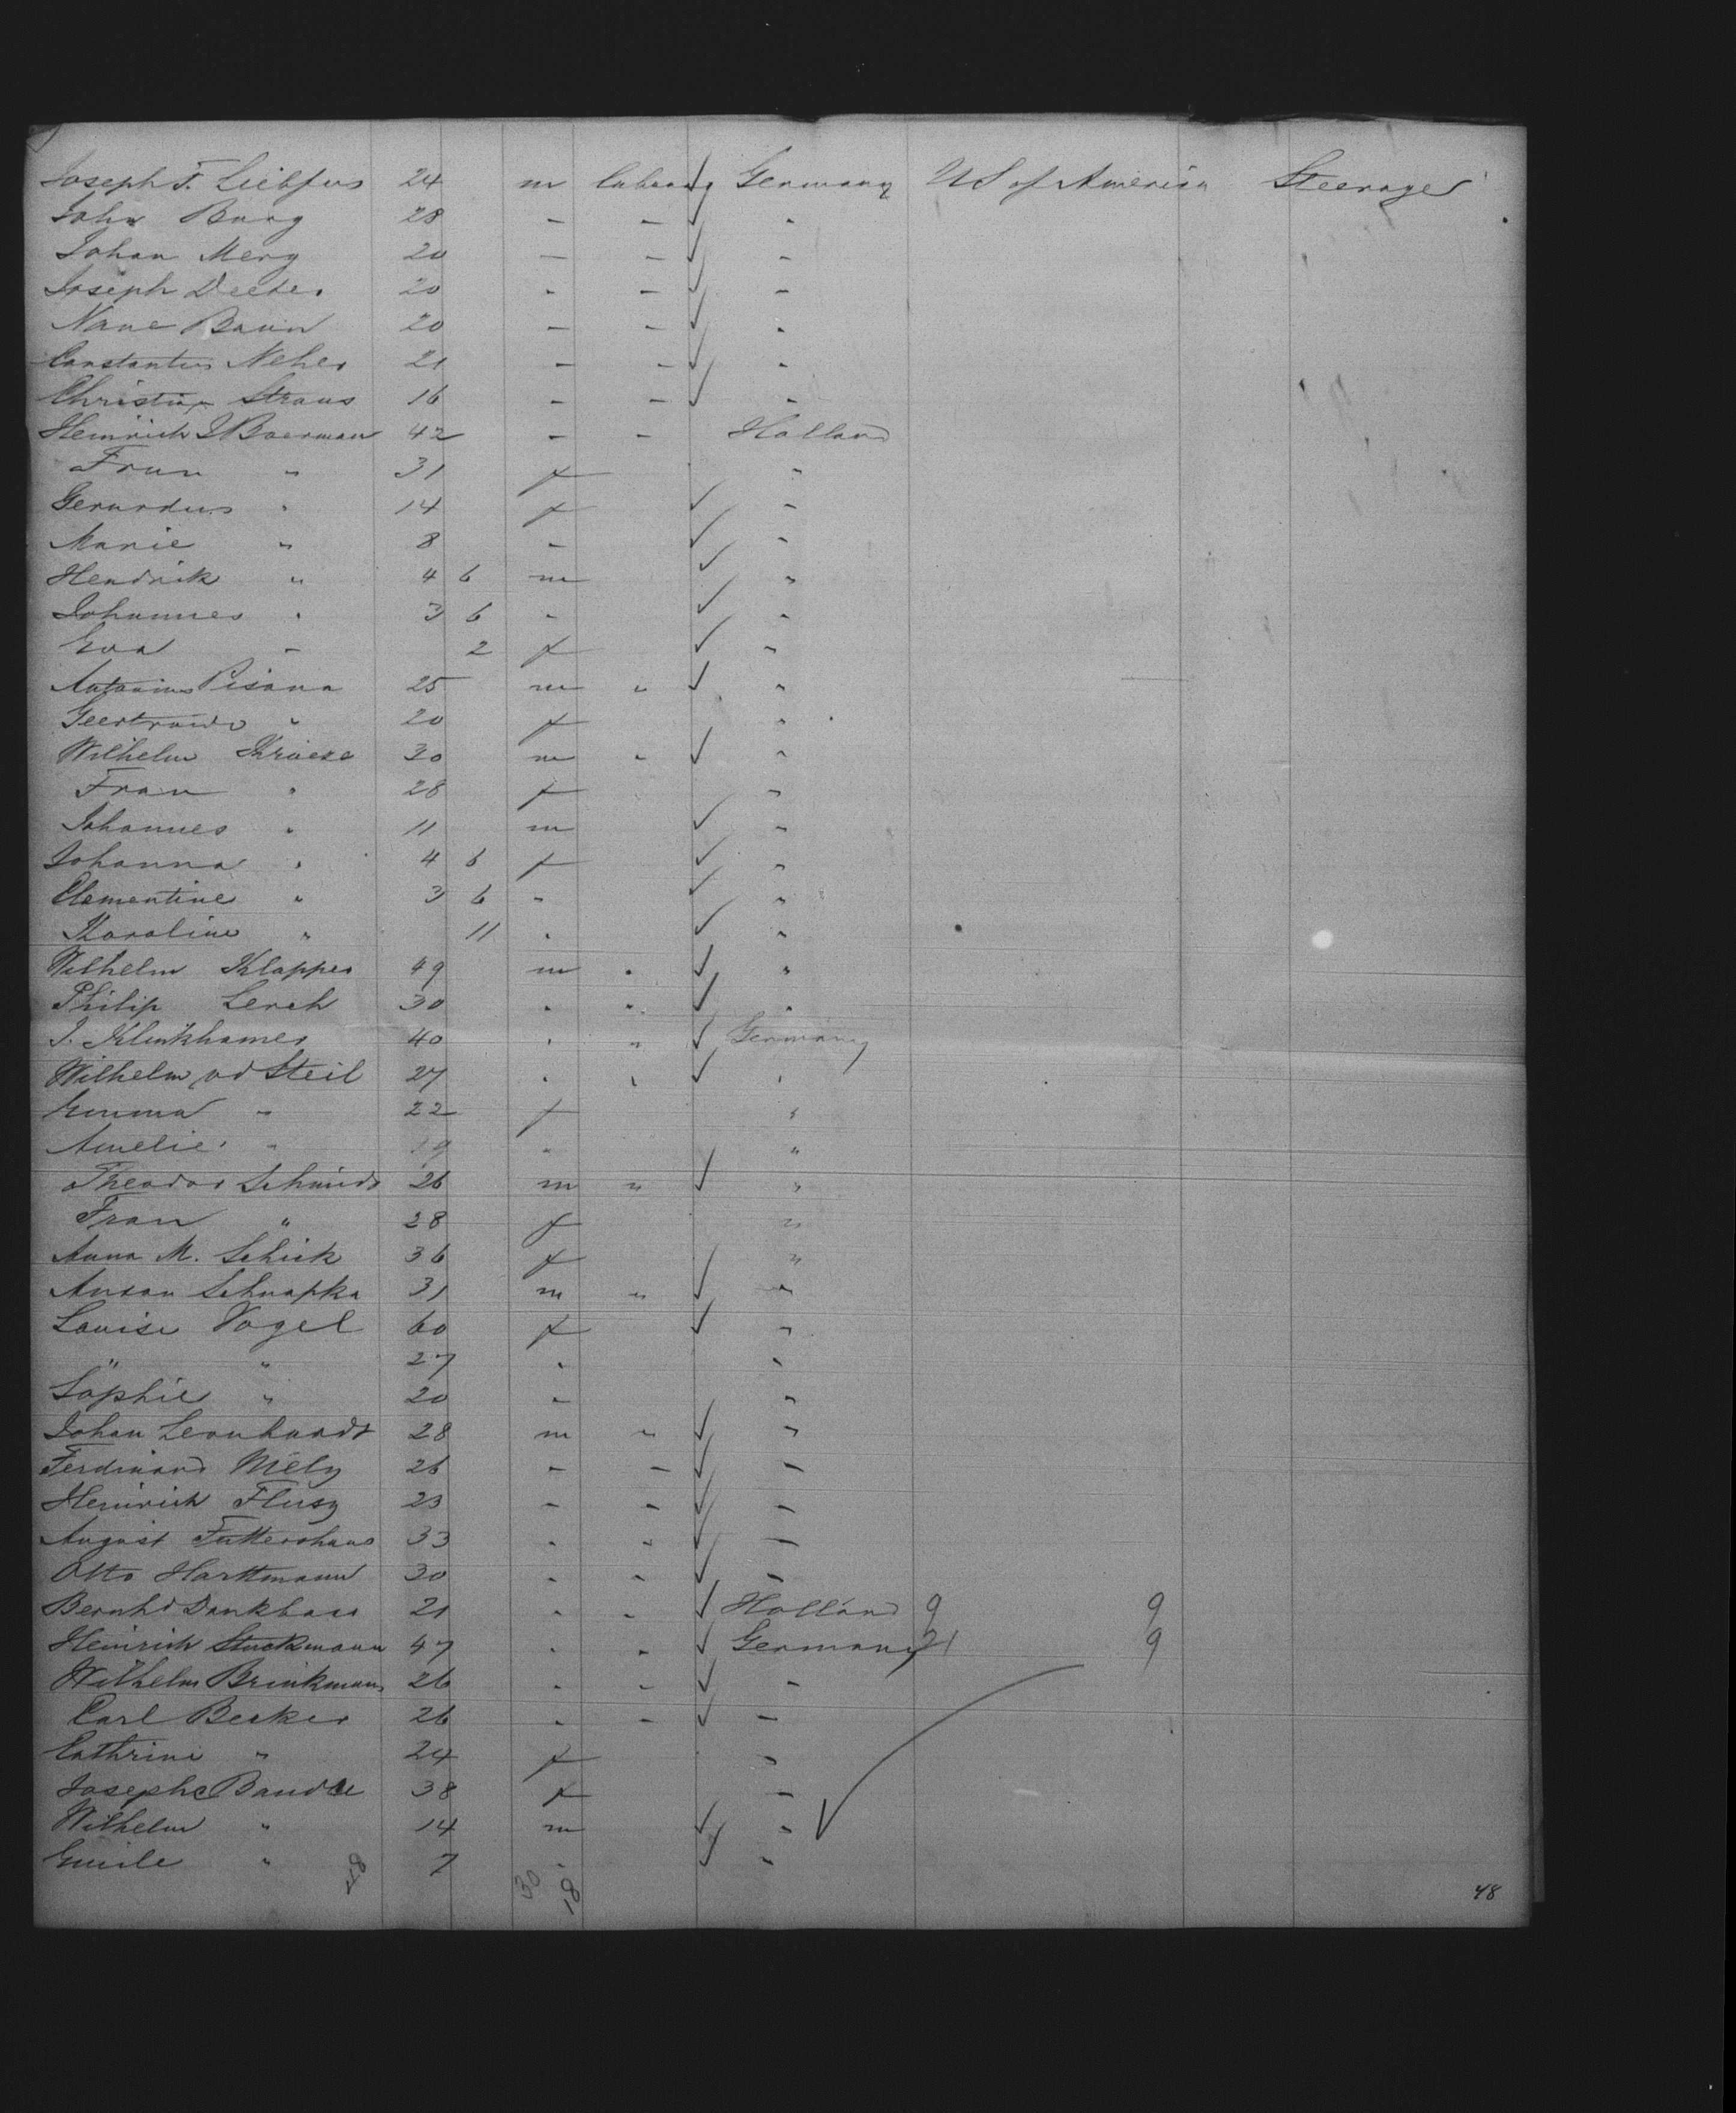 Joseph F. Liebfus 24 m laborer Germany US of America Steerage
John Burg 28 - - -
Johan Merg 20 - - -
Joseph Deeter 20 - - -
Baun 20 - - -
Constantin Neher 21 - - -
Christian Straus 16 - - -
Heinrich J Boerman 42 - - Holland
Frau " 31 f "
Gerardus " 14 f "
Marie " 8 - "
Hendrik " 4 6 m "
Johannes " 3 6 - "
Eva - 2 f "
Antonius Pisana 25 m " "
Geertruide " 20 f "
Wilhelm Kroese 30 m " "
Frau " 28 f "
Johannes " 11 m "
Johanna " 4 6 f "
Clementine " 3 6 " "
Karoline " 11 " "
Wilhelm Klapper 49 m " "
Philip Lerch 30 " " "
J. Klinkhamer 40 " " Germany
Wilhelm vd Steil 27 " " "
Emma " 22 f "
Amelie " 19 " "
Theodor Schmidt 26 m " "
Frau " 28 f "
Anna M. Schick 36 f "
Schnapka 31 m " "
Louise Vogel 60 f "
" " 27 " "
Sophie " 20 " "
Johan Leonhardt 28 m " "
Ferdinand Mely 26 - - -
Heinrich Flusz 23 - - -
August Futtershaus 33 " " -
Otto Harttmann 30 " " -
Bernhd Dankbaar 21 " " Holland 9 9
Heinrich Stuckmann 47 " " Germany 21 9
Wilhelm Brinkmann 26 " " -
Carl Becker 26 " - -
Cathrine " 24 f "
Josephe Bandle 38 f -
Wilhelm " 14 m "
Emile " 7 - "
48 30 18
48